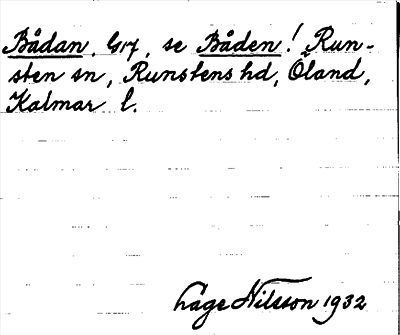 Bådan, G17, se Båden! Run-
sten sn, Runstens hd, Öland,
Kalmar l.
Lage Nilsson 1932